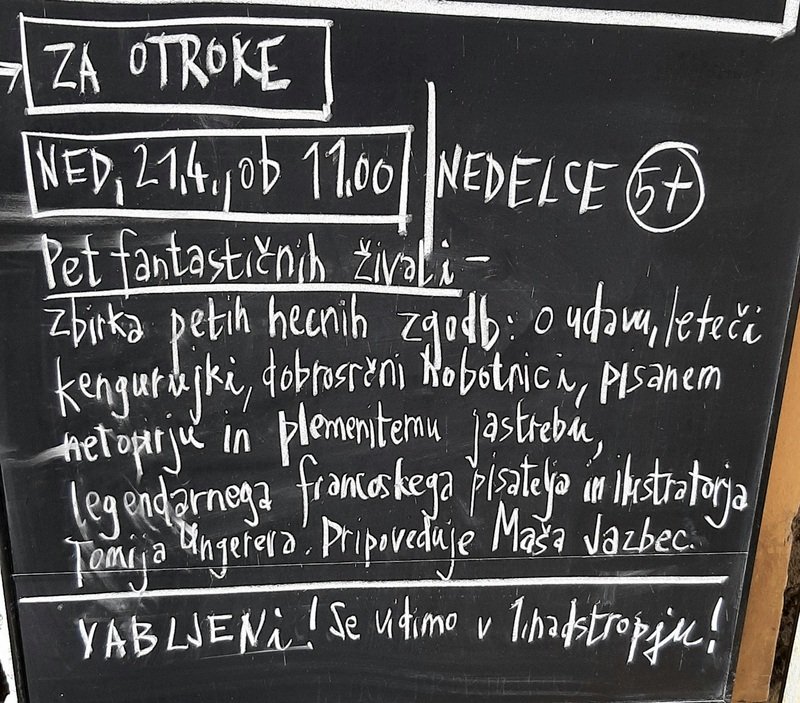 ZA OTROKE
NED, 21.4., ob 11.00
NEDELCE 5+
Pet fantastičnih živali –
zbirka petih hecnih zgodb: o udavu, leteči
kengurujki, dobrosrčni hobotnici, pisanem
netopirju in plemenitemu jastrebu,
legendarnega francoskega pisatelja in ilustratorja
Tomija Ungererja. Pripoveduje Maša Jazbec.
VABLJENi! Se vidimo v 1. nadstropju!